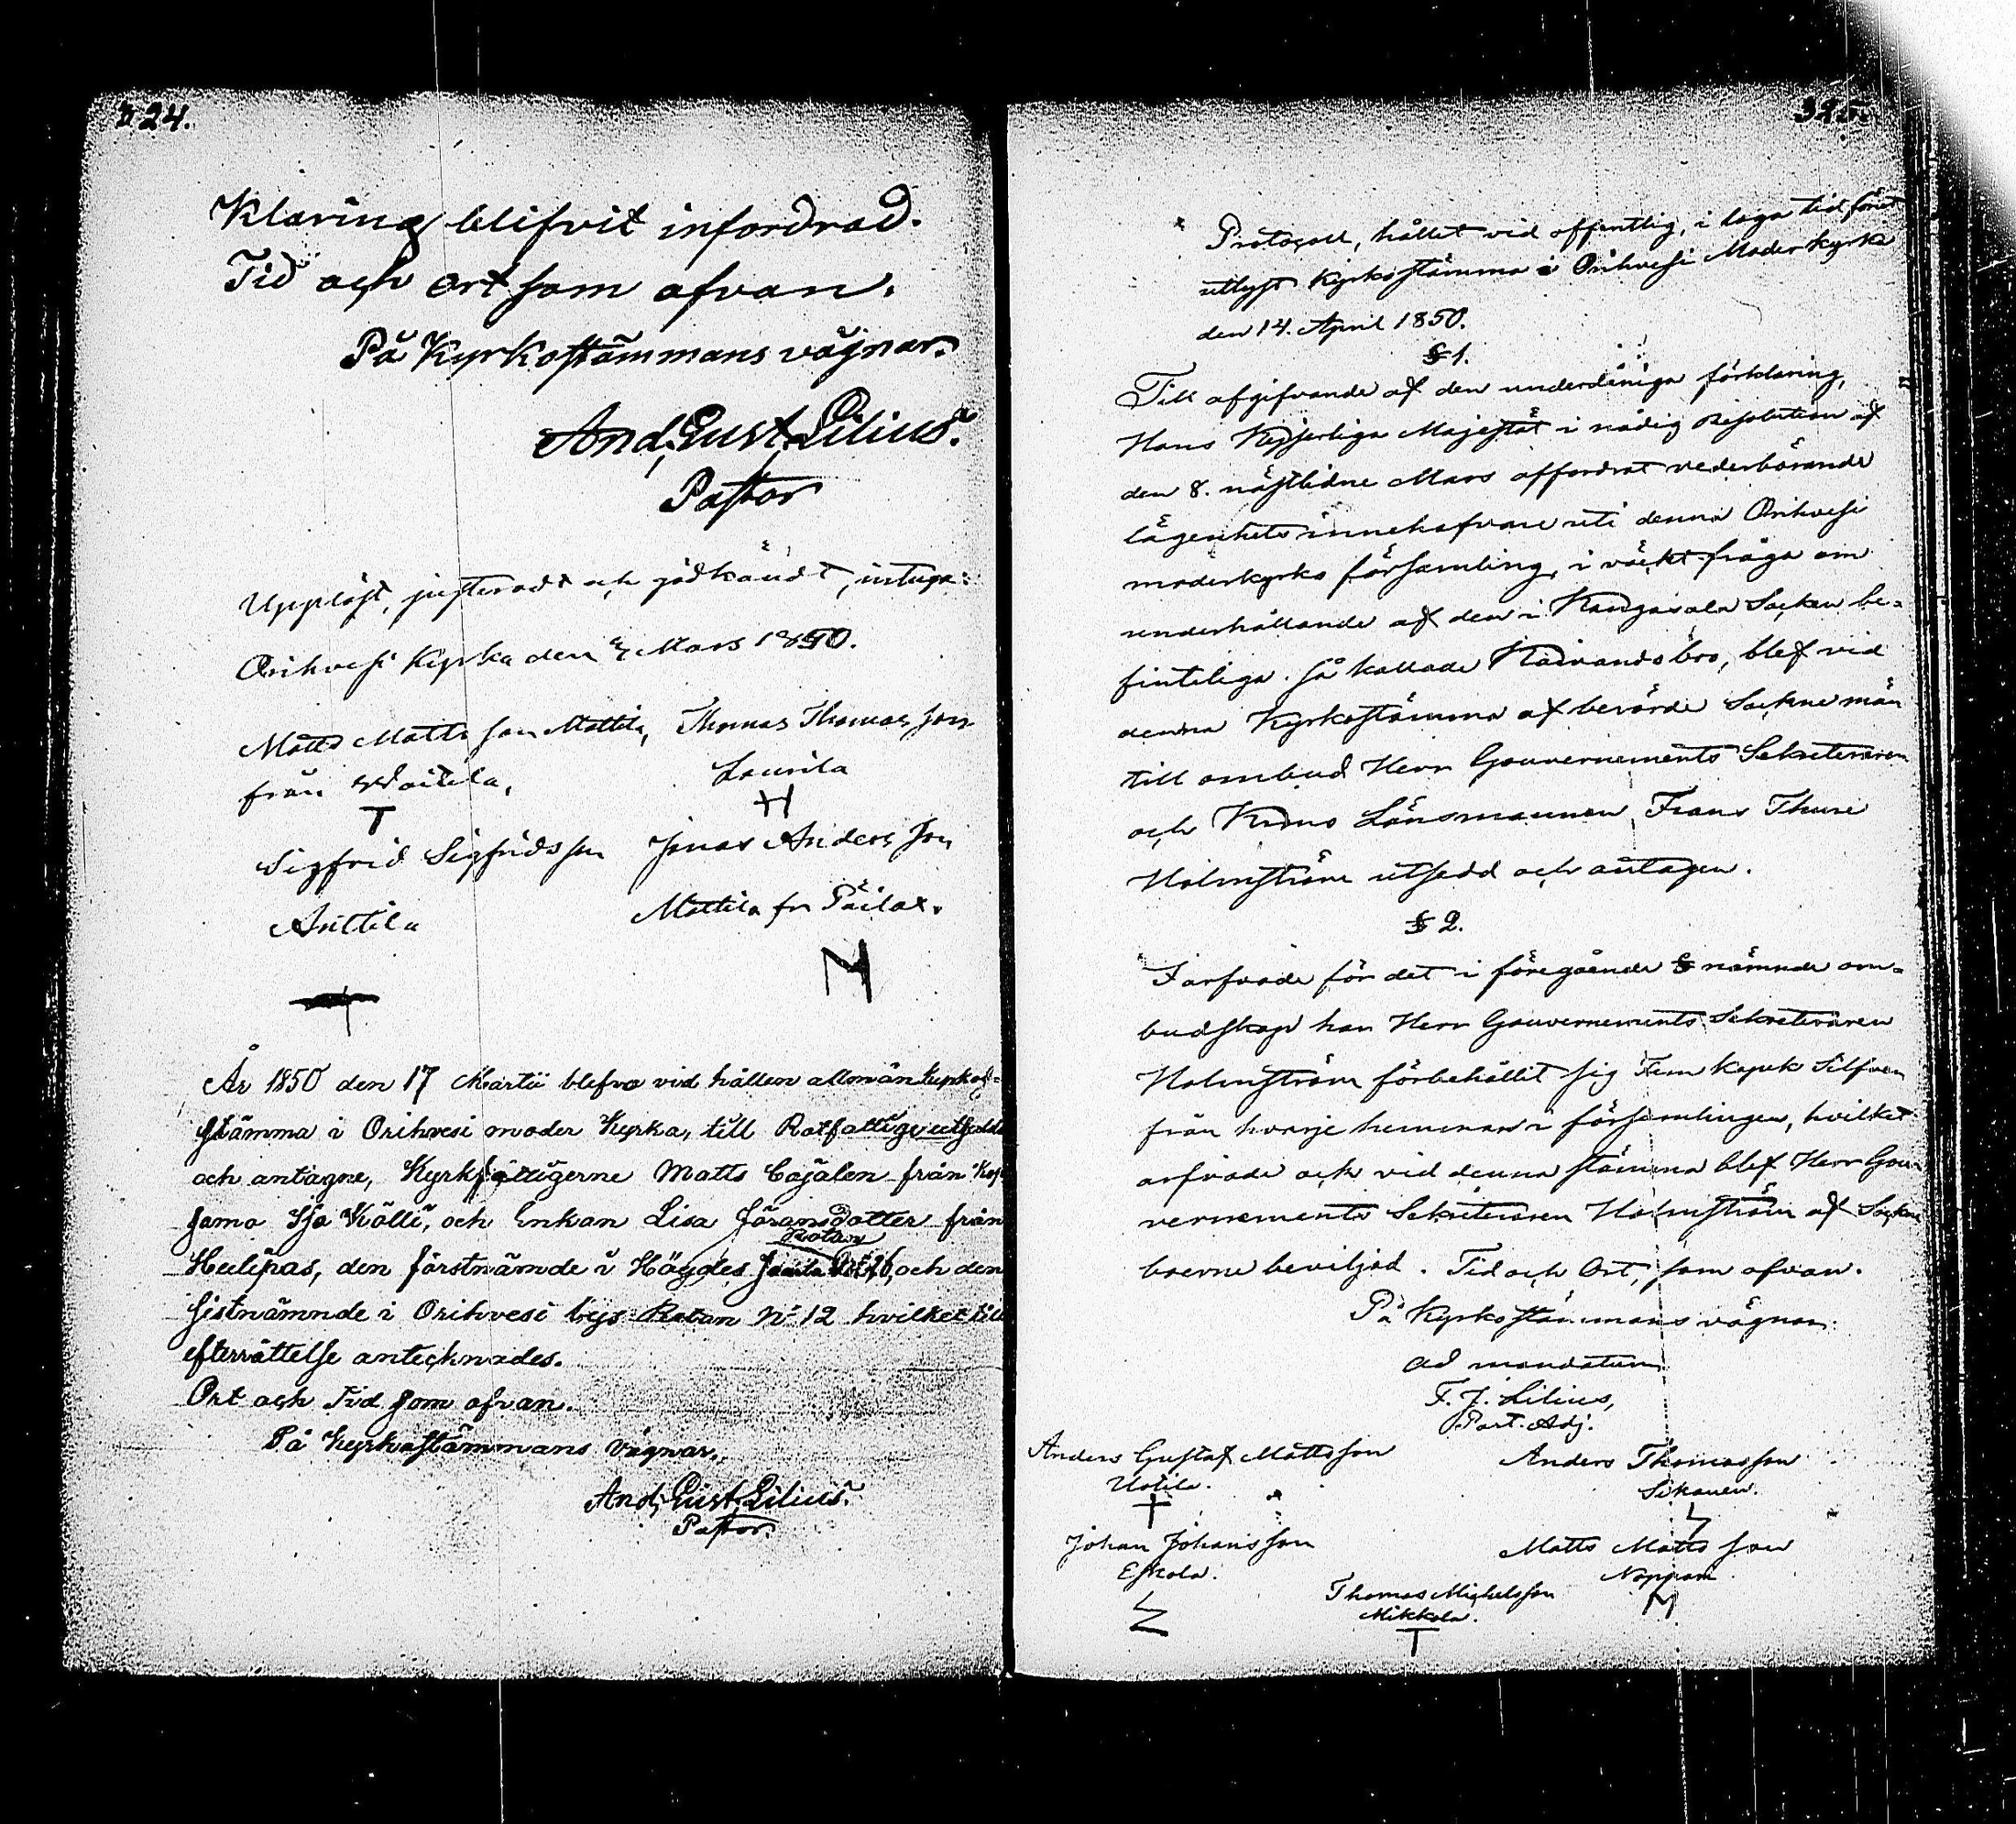 324.
Klaring blifvit infordrad.
Tid och ort som ofvan.
På Kyrkostämmans vägnar.
And. Gust. Lilius.
Pastor
Uppläst, justeradt och godkändt, intyga:
Orihvesi Kyrka den Mars 1850.
Matts Mattsson Mattila, Thomas Thomasson
från Laurila
T H
Sigfrid Sigfridsson Jonas Andersson
Anttila Mattila fr Päilax.
År 1850 den 17 Martii blefvo vid hållen allmän kyrko-
stämma i Orihvesi moder Kyrka, till Rotfattige utsedde
och antagne, Kyrkfattigerne Matts Cajalen från
jamo Kölli, och Enkan Lisa Göransdotter från
Rotan
Heilipas, den förstnämde i Höydes och den
sistnämnde i Orihvesi bys Rotan No 12 hvilket till
efterrättelse antecknades.
Ort och Tid som ofvan.
På Kyrkostämmans vägnar,
And. Gust. Lilius.
Pastor.
325.
Protocoll, hållet vid offentlig, i laga tid förut
utlyst Kyrkostämma i Orihvesi Moderkyrka
den 14. April 1850.
§ 1.
Till afgifvande af den underdåniga förklaring,
Hans Kejserliga Majestät i nådig Resolution af
den 8. nästlidne Mars affordrat vederbörande
lägenhetsinnehafvare uti denna Orihvesi
moderkyrko församling, i väckt fråga om
underhållande af den i Kangasala Socken be-
finteliga så kallade Kaivandsbro, blef vid
denna Kyrkostämma af berörde Sockne män
till ombud Herr Gouvernements Sekreteraren
och Krono Länsmannen Frans Thure
Holmström utsedd och antagen.
§ 2.
I arfvode för det i föregående § nämnde om-
budskap han Herr Gouvernements Sekreteraren
Holmström förbehållit sig Fem kopek Silfver
från hvarje hemman i församlingen, hvilket
arfvode ock vid denna stämma blef Herr Gou-
vernements Sekreteraren Holmström af Sockne
boerne beviljad. Tid och Ort, som ofvan.
På Kyrkostämmans vägnar:
ad mandatum
F. J. Lilius,
Past. Adj.
Anders Gustaf Mattsson Anders Thomasson
Uotila. Sikanen.
Johan Johansson Matts Mattsson
Eskola.
Thomas Michelsson
Mikkola.
T